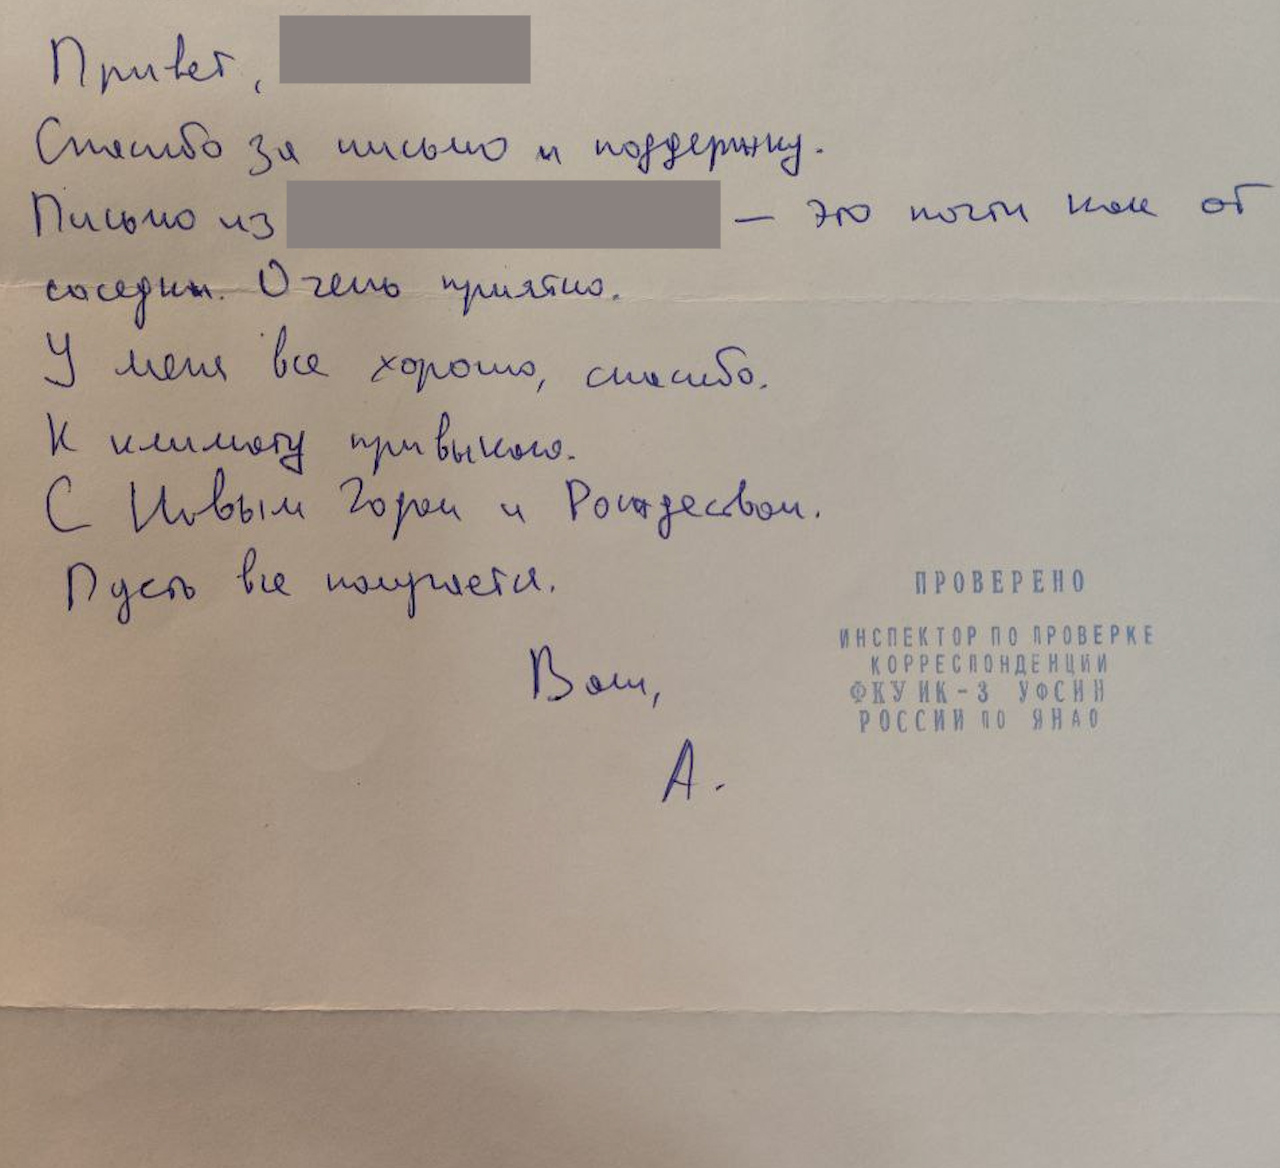 Привет,
Спасибо за письмо и поддержку.
Письмо из — это почти как от
соседки. Очень приятно.
У меня все хорошо, спасибо.
К климату привыкаю.
С Новым Годом и Рождеством.
Пусть все получается.
Ваш,
А.
ПРОВЕРЕНО
ИНСПЕКТОР ПО ПРОВЕРКЕ
КОРРЕСПОНДЕНЦИИ
ФКУ ИК-3 УФСИН
РОССИИ ПО ЯНАО